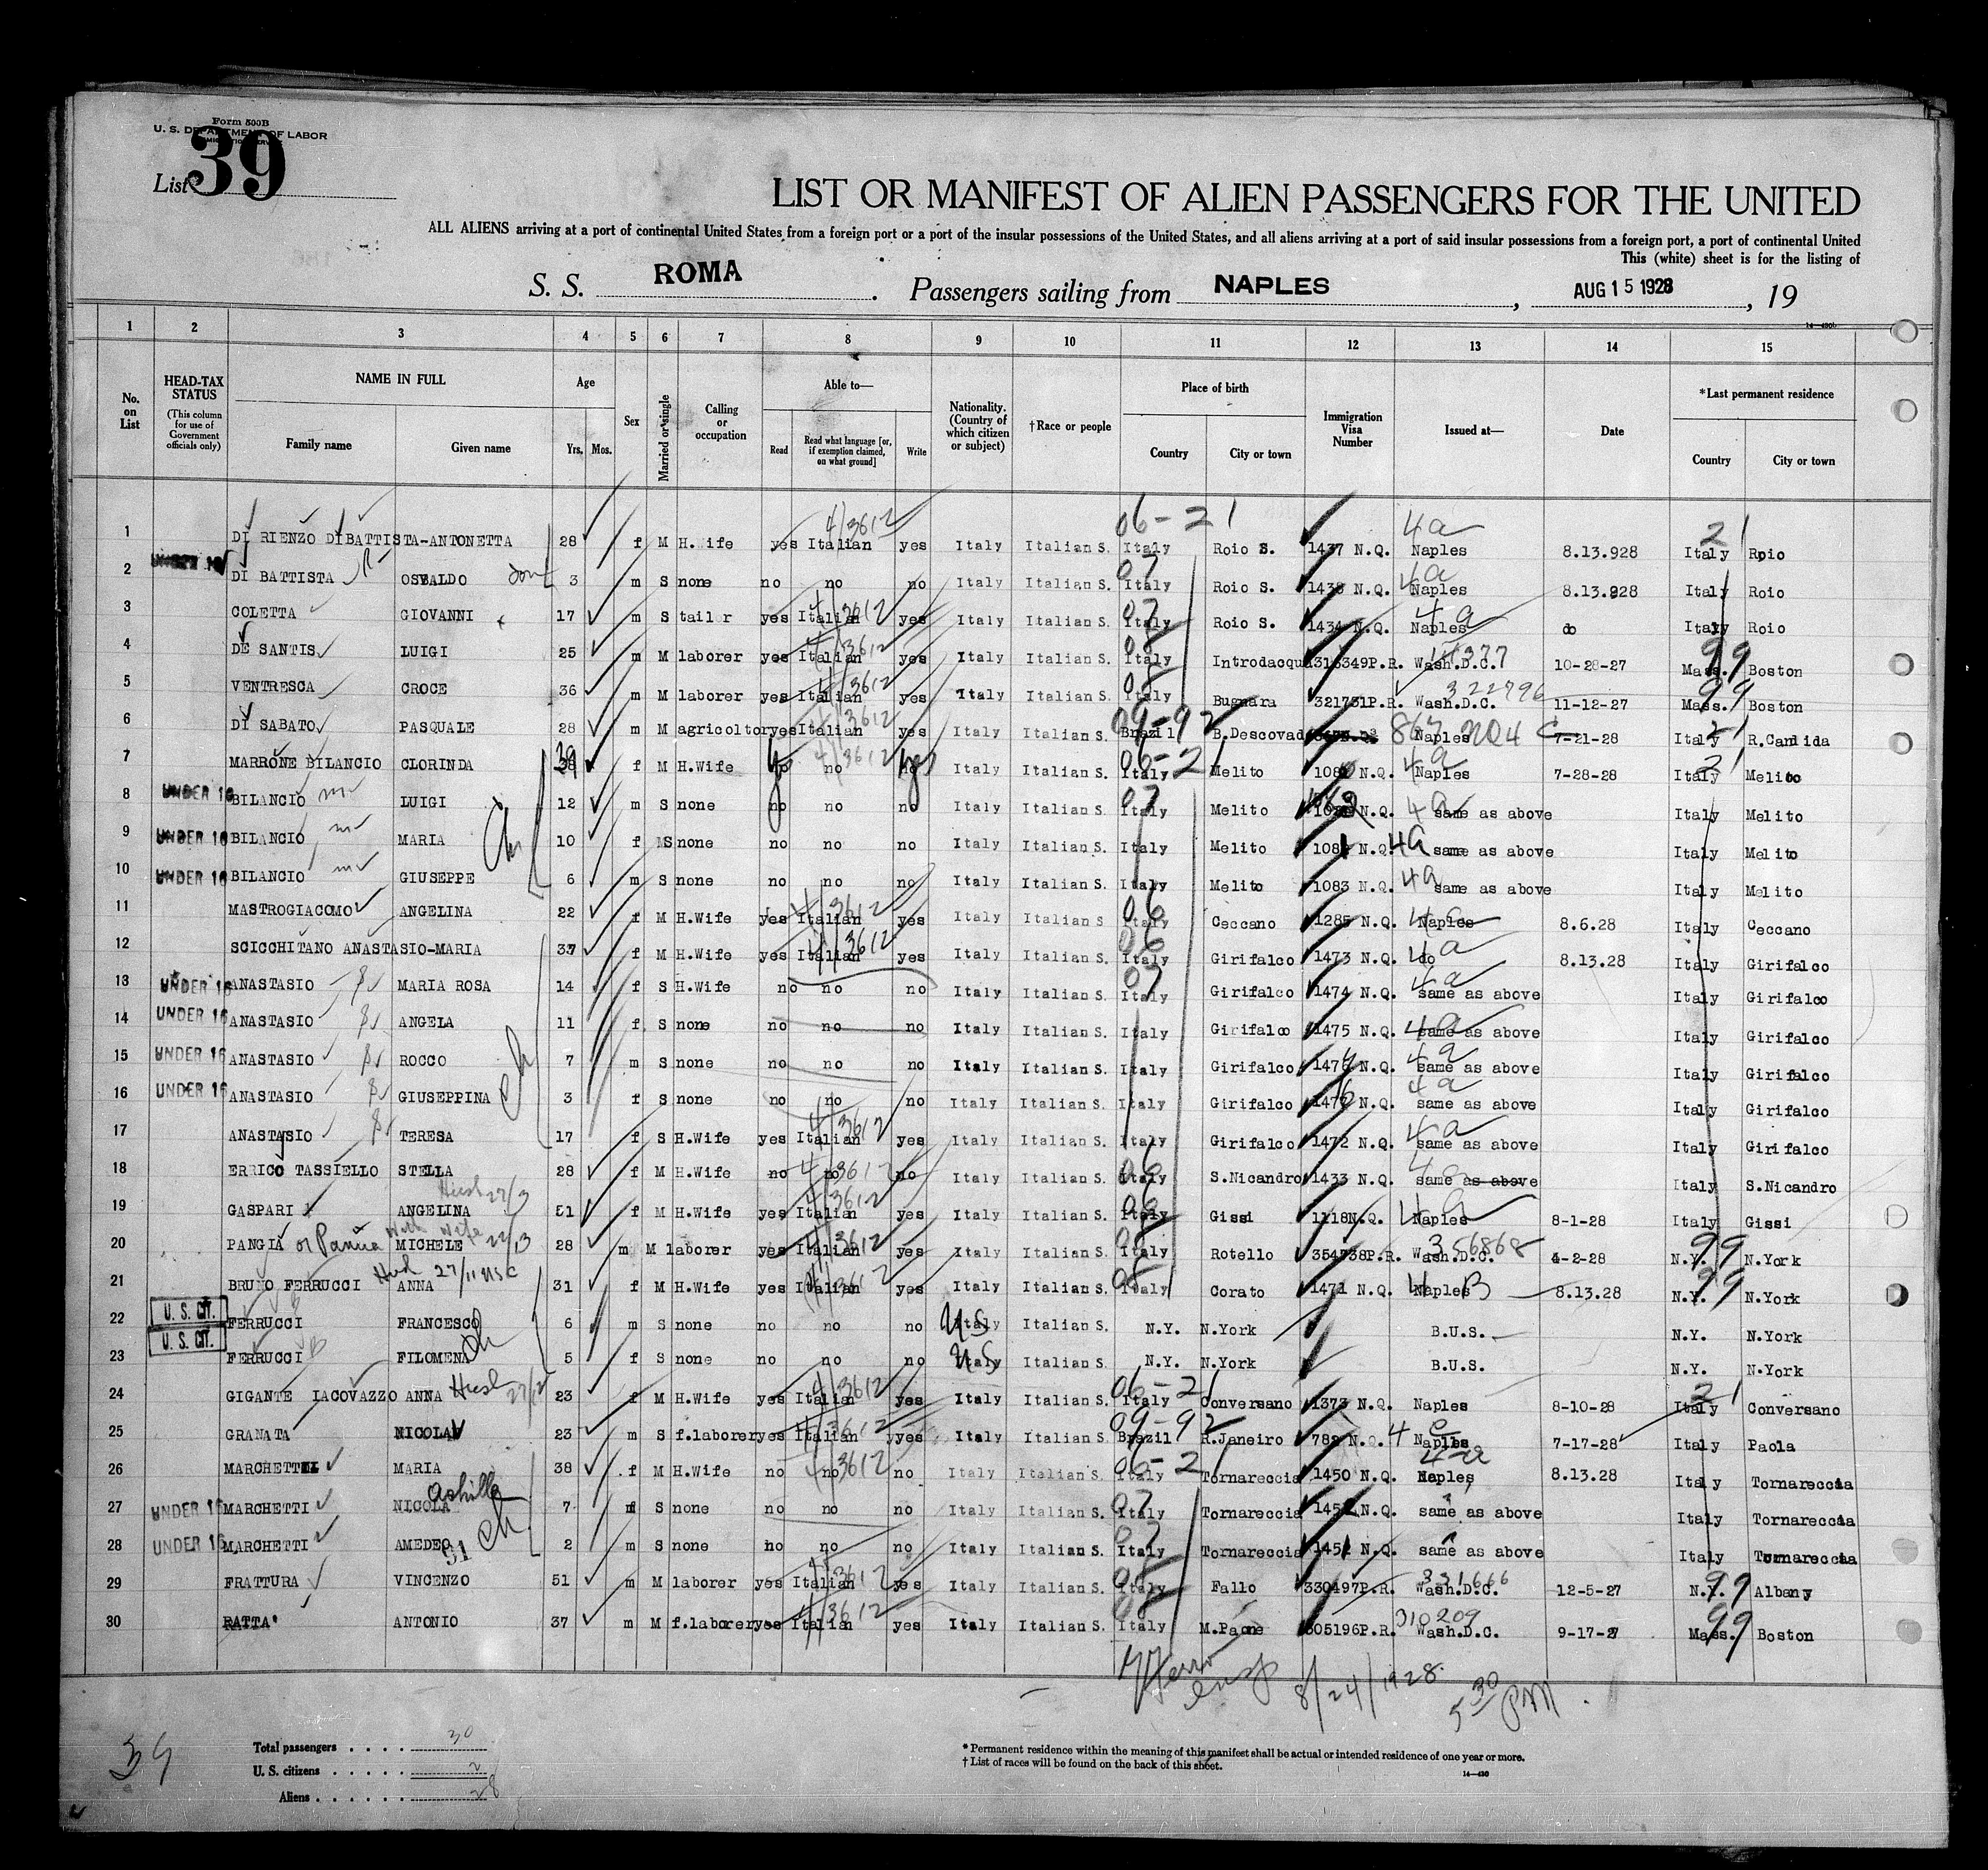 Form 500B
U. S. DEPARTMENT OF LABOR
List 39
LIST OR MANIFEST OF ALIEN PASSENGERS FOR THE UNITED
ALL ALIENS arriving at a port of continental United States from a foreign port or a port of the insular possessions of the United States, and all aliens arriving at a port of said insular possessions from a foreign port, a port of continental United
This (white) sheet is for the listing of
S. S. ROMA. Passengers sailing from NAPLES, AUG 15 1928, 19
1 2 3 4 5 6 7 8 9 10 11 12 13 14 15
No. on List
HEAD-TAX STATUS (This column for use of Government officials only)
NAME IN FULL Family name Given name
Age Yrs. Mos.
Sex
Married or single
Calling or occupation
Able to— Read Read what language [or, if exemption claimed, on what ground] Write
Nationality. (Country of which citizen or subject)
†Race or people
Place of birth Country City or town
Immigration Visa Number
Issued at—
Date
*Last permanent residence Country City or town
1 DI RIENZO DIBATTISTA-ANTONETTA 28 f M H.Wife yes Italian yes Italy Italian S. Italy Roio S. 1437 N.Q. Naples 8.13.928 Italy Roio
2 UNDER 16 DI BATTISTA OSVALDO 3 m S none no no no Italy Italian S. Italy Roio S. 1438 N.Q. Naples 8.13.928 Italy Roio
3 COLETTA GIOVANNI 17 m S tail r yes Italian yes Italy Italian S. Italy Roio S. 1434 N.Q. Naples do Italy Roio
4 DE SANTIS LUIGI 25 m M laborer yes Italian yes Italy Italian S. Italy Introdacqua 316349P.R. Wash.D.C. 10-28-27 Mass. 99 Boston
5 VENTRESCA CROCE 36 m M laborer yes Italian yes Italy Italian S. Italy Bugnara 321731P.R. Wash.D.C. 322796 11-12-27 Mass. 99 Boston
6 DI SABATO PASQUALE 28 m M agricoltor yes Italian yes Italy Italian S. Brazil B.Descovad Naples 7-21-28 Italy R.Candida
7 MARRONE BILANCIO CLORINDA 38 f M H.Wife no no Italy Italian S. Italy Melito N.Q. Naples 7-28-28 Italy Melito
8 UNDER 16 BILANCIO LUIGI 12 m S none no no no Italy Italian S. Italy Melito N.Q. same as above Italy Melito
9 UNDER 16 BILANCIO MARIA 10 f S none no no no Italy Italian S. Italy Melito N.Q. 4a same as above Italy Melito
10 UNDER 16 BILANCIO GIUSEPPE 6 m S none no no no Italy Italian S. Italy Melito 1083 N.Q. 4a same as above Italy Melito
11 MASTROGIACOMO ANGELINA 22 f M H.Wife yes Italian yes Italy Italian S Italy Ceccano 1285 N.Q. Naples 8.6.28 Italy Ceccano
12 SCICCHITANO ANASTASIO-MARIA 37 f M H.Wife yes Italian yes Italy Italian S. Italy Girifalco 1473 N.Q. do 8.13.28 Italy Girifalco
13 UNDER 16 ANASTASIO MARIA ROSA 14 f S H.Wife no no no Italy Italian S. Italy Girifalco 1474 N.Q. same as above Italy Girifalco
14 UNDER 16 ANASTASIO ANGELA 11 f S none no no no Italy Italian S. Italy Girifalco 1475 N.Q. same as above Italy Girifalco
15 UNDER 16 ANASTASIO ROCCO 7 m S none no no no Italy Italian S. Italy Girifalco N.Q. same as above Italy Girifalco
16 UNDER 16 ANASTASIO GIUSEPPINA 3 f S none no no no Italy Italian S. Italy Girifalco N.Q. same as above Italy Girifalco
17 ANASTASIO TERESA 17 f S H.Wife yes Italian yes Italy Italian S. Italy Girifalco 1472 N.Q. same as above Italy Girifalco
18 ERRICO TASSIELLO STELLA 28 f M H.Wife no no no Italy Italian S. Italy S.Nicandro 1433 N.Q. same as above Italy S.Nicandro
19 GASPARI ANGELINA 51 f M H.Wife yes Italian yes Italy Italian S. Italy Gissi 1118N.Q. Naples 8-1-28 Italy Gissi
20 PANGIA MICHELE 28 m M laborer yes Italian yes Italy Italian S. Italy Rotello 354738P.R. Wash.D.C. 356868 4-2-28 N.Y. 99 N.York
21 BRUNO FERRUCCI ANNA 31 f M H.Wife yes Italian yes Italy Italian S. Italy Corato 1471 N.Q. Naples 8.13.28 N.Y. 99 N.York
22 U. S. CIT. FERRUCCI FRANCESCO 6 m S none no no no Italy US Italian S. N.Y. N.York B.U.S. N.Y. N.York
23 U. S. CIT. FERRUCCI FILOMENA 5 f S none no no no Italy US Italian S. N.Y. N.York B.U.S. N.Y. N.York
24 GIGANTE IACOVAZZO ANNA 23 f M H.Wife yes Italian yes Italy Italian S. Italy Conversano 1373 N.Q. Naples 8-10-28 Italy Conversano
25 GRANATA NICOLA 23 m S f.laborer yes Italian yes Italy Italian S. Brazil R.Janeiro 782 N.Q. Naples 7-17-28 Italy Paola
26 MARCHETTI MARIA 38 f M H.Wife no no no Italy Italian S. Italy Tornareccia 1450 N.Q. Naples 8.13.28 Italy Tornareccia
27 UNDER 16 MARCHETTI NICOLA 7 m S none no no no Italy Italian S. Italy Tornareccia N.Q. same as above Italy Tornareccia
28 UNDER 16 MARCHETTI AMEDEO 2 m S none no no no Italy Italian S. Italy Tornareccia N.Q. same as above Italy Tornareccia
29 FRATTURA VINCENZO 51 m M laborer yes Italian yes Italy Italian S. Italy Fallo 330497P.R. Wash.D.C. 331666 12-5-27 N.Y. 99 Albany
30 RATTA' ANTONIO 37 m M f.laborer yes Italian yes Italy Italian S. Italy M.Paone 305196P.R. Wash.D.C. 310209 9-17-27 Mass. 99 Boston
8/24/1928. 5 30 PM
39
Total passengers . . . . 30
U. S. citizens . . . . . 2
Aliens . . . . . . 28
* Permanent residence within the meaning of this manifest shall be actual or intended residence of one year or more.
† List of races will be found on the back of this sheet.